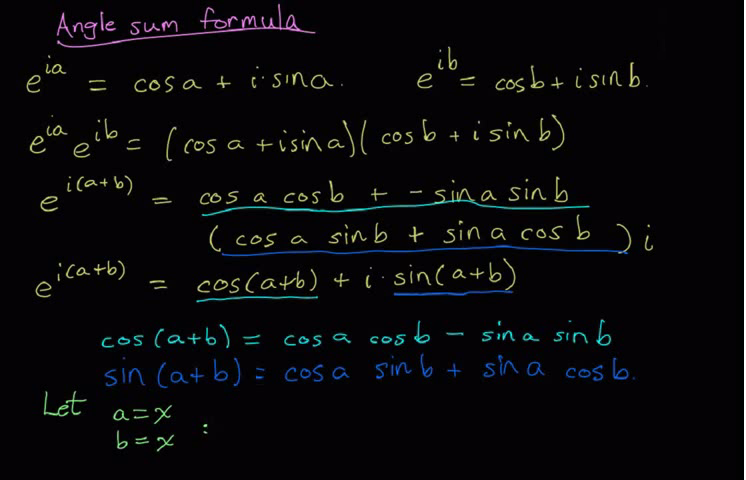 Angle sum formula
e^{ia} = cos a + i·sin a. e^{ib} = cos b + i sin b.
e^{ia} e^{ib} = (cos a + i sin a)(cos b + i sin b)
e^{i(a+b)} = cos a cos b + - sin a sin b
(cos a sin b + sin a cos b) i
e^{i(a+b)} = cos(a+b) + i·sin(a+b)
cos(a+b) = cos a cos b - sin a sin b
sin(a+b) = cos a sin b + sin a cos b.
Let a = x
b = x :